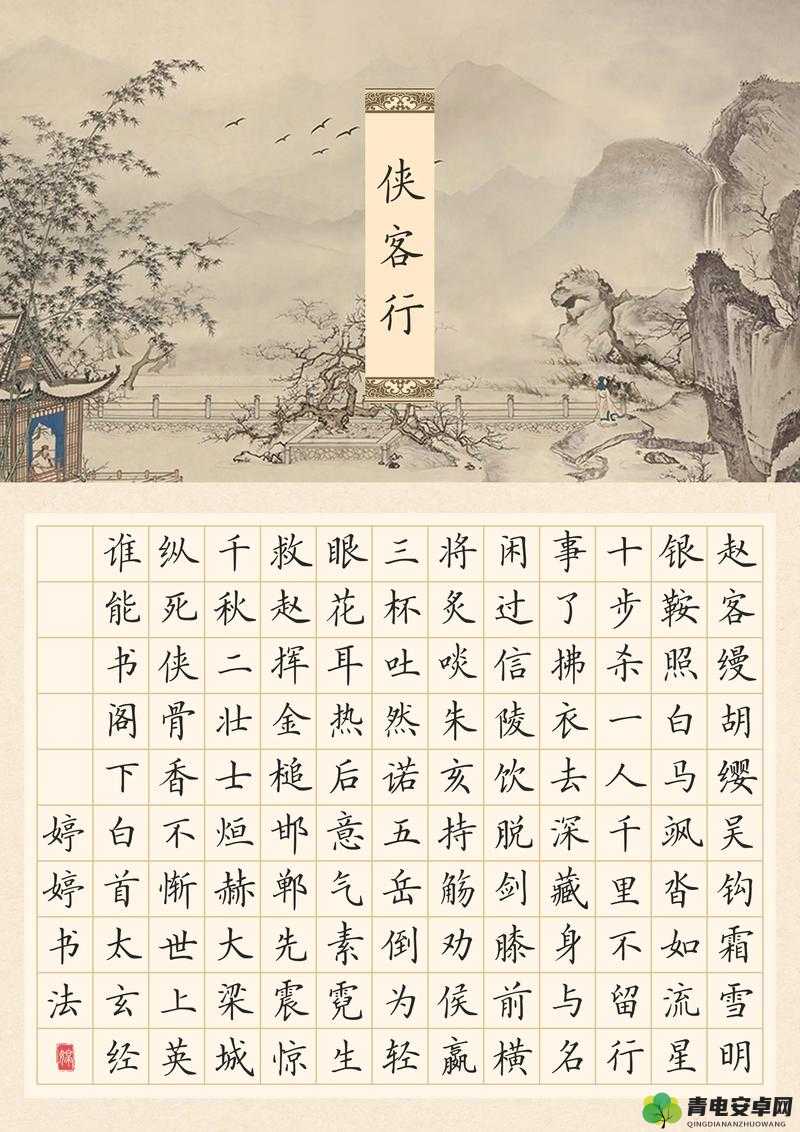 侠客行
赵客缦胡缨吴钩霜雪明
银鞍照白马飒沓如流星
十步杀一人千里不留行
事了拂衣去深藏身与名
闲过信陵饮脱剑膝前横
将炙啖朱亥持觞劝侯嬴
三杯吐然诺五岳倒为轻
眼花耳热后意气素霓生
救赵挥金槌邯郸先震惊
千秋二壮士烜赫大梁城
纵死侠骨香不惭世上英
谁能书阁下白首太玄经
婷婷书法
青电安卓网
QINGDIANANZHUOWANG